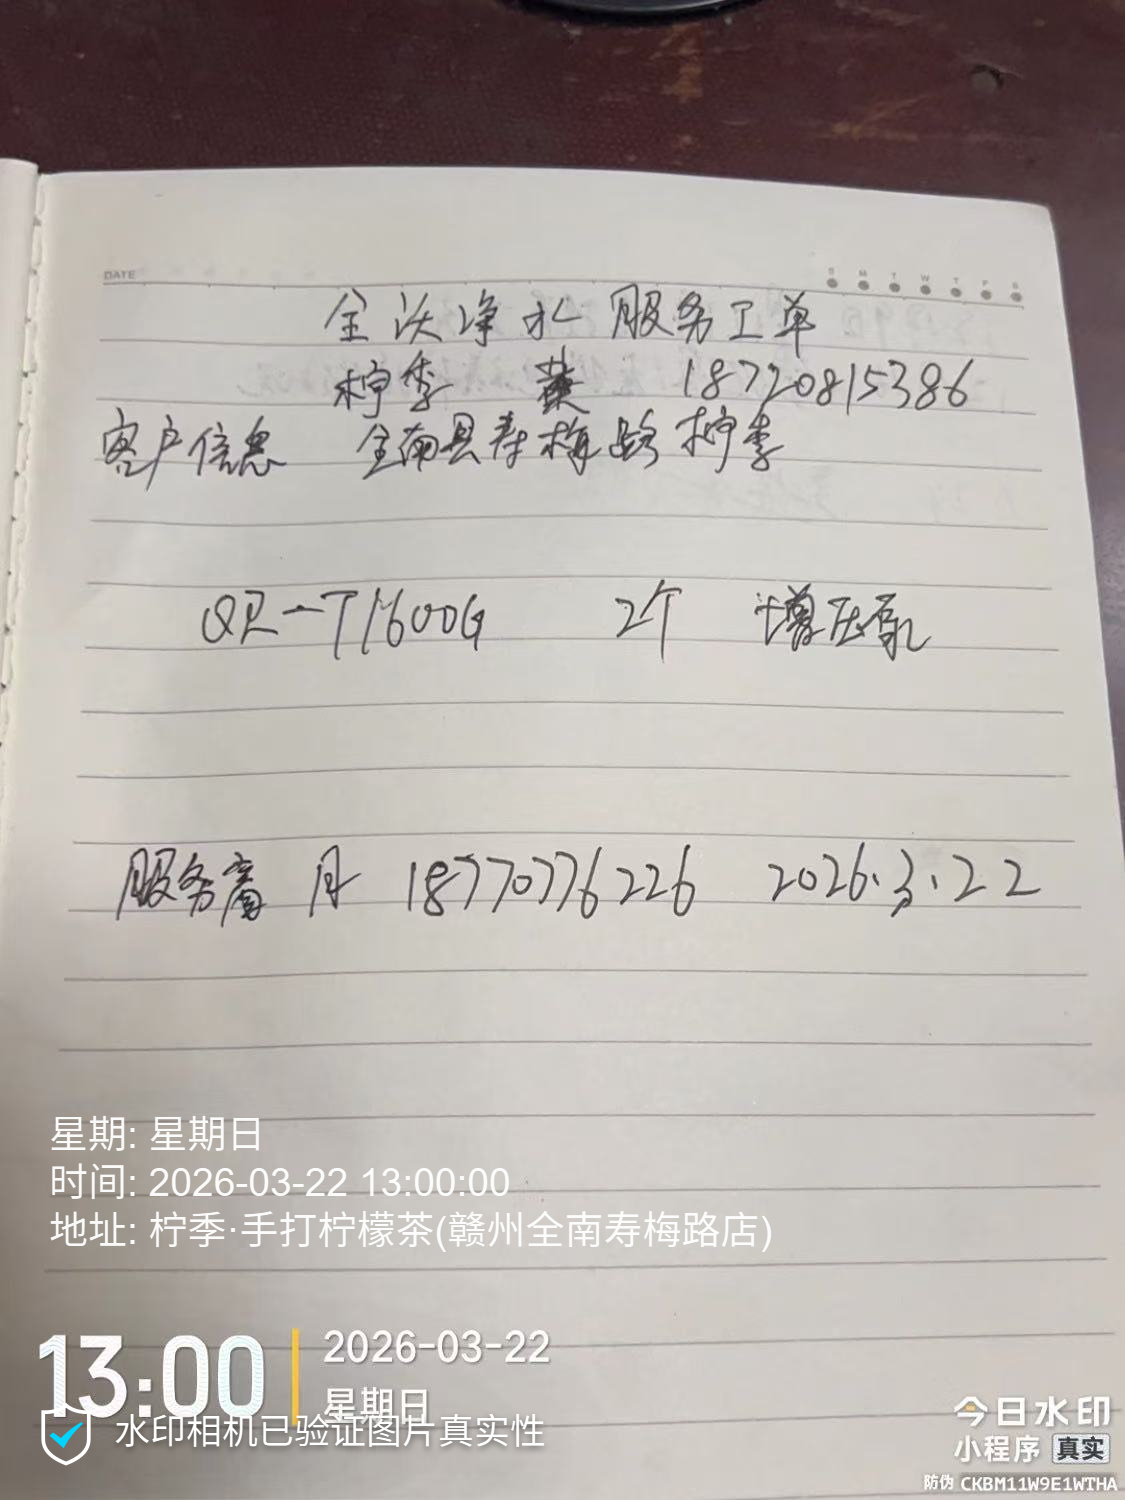 DATE
S M T W T F S
全沃净水 服务工单
柠季 龚 18720815386
客户信息 全南县寿梅路柠季
QR-T1600G 2个 增压泵
服务商 18770776226 2026.3.22
星期: 星期日
时间: 2026-03-22 13:00:00
地址: 柠季·手打柠檬茶(赣州全南寿梅路店)
13:00
2026-03-22
星期日
水印相机已验证图片真实性
今日水印
小程序 真实
防伪 CKBM11W9E1WTHA